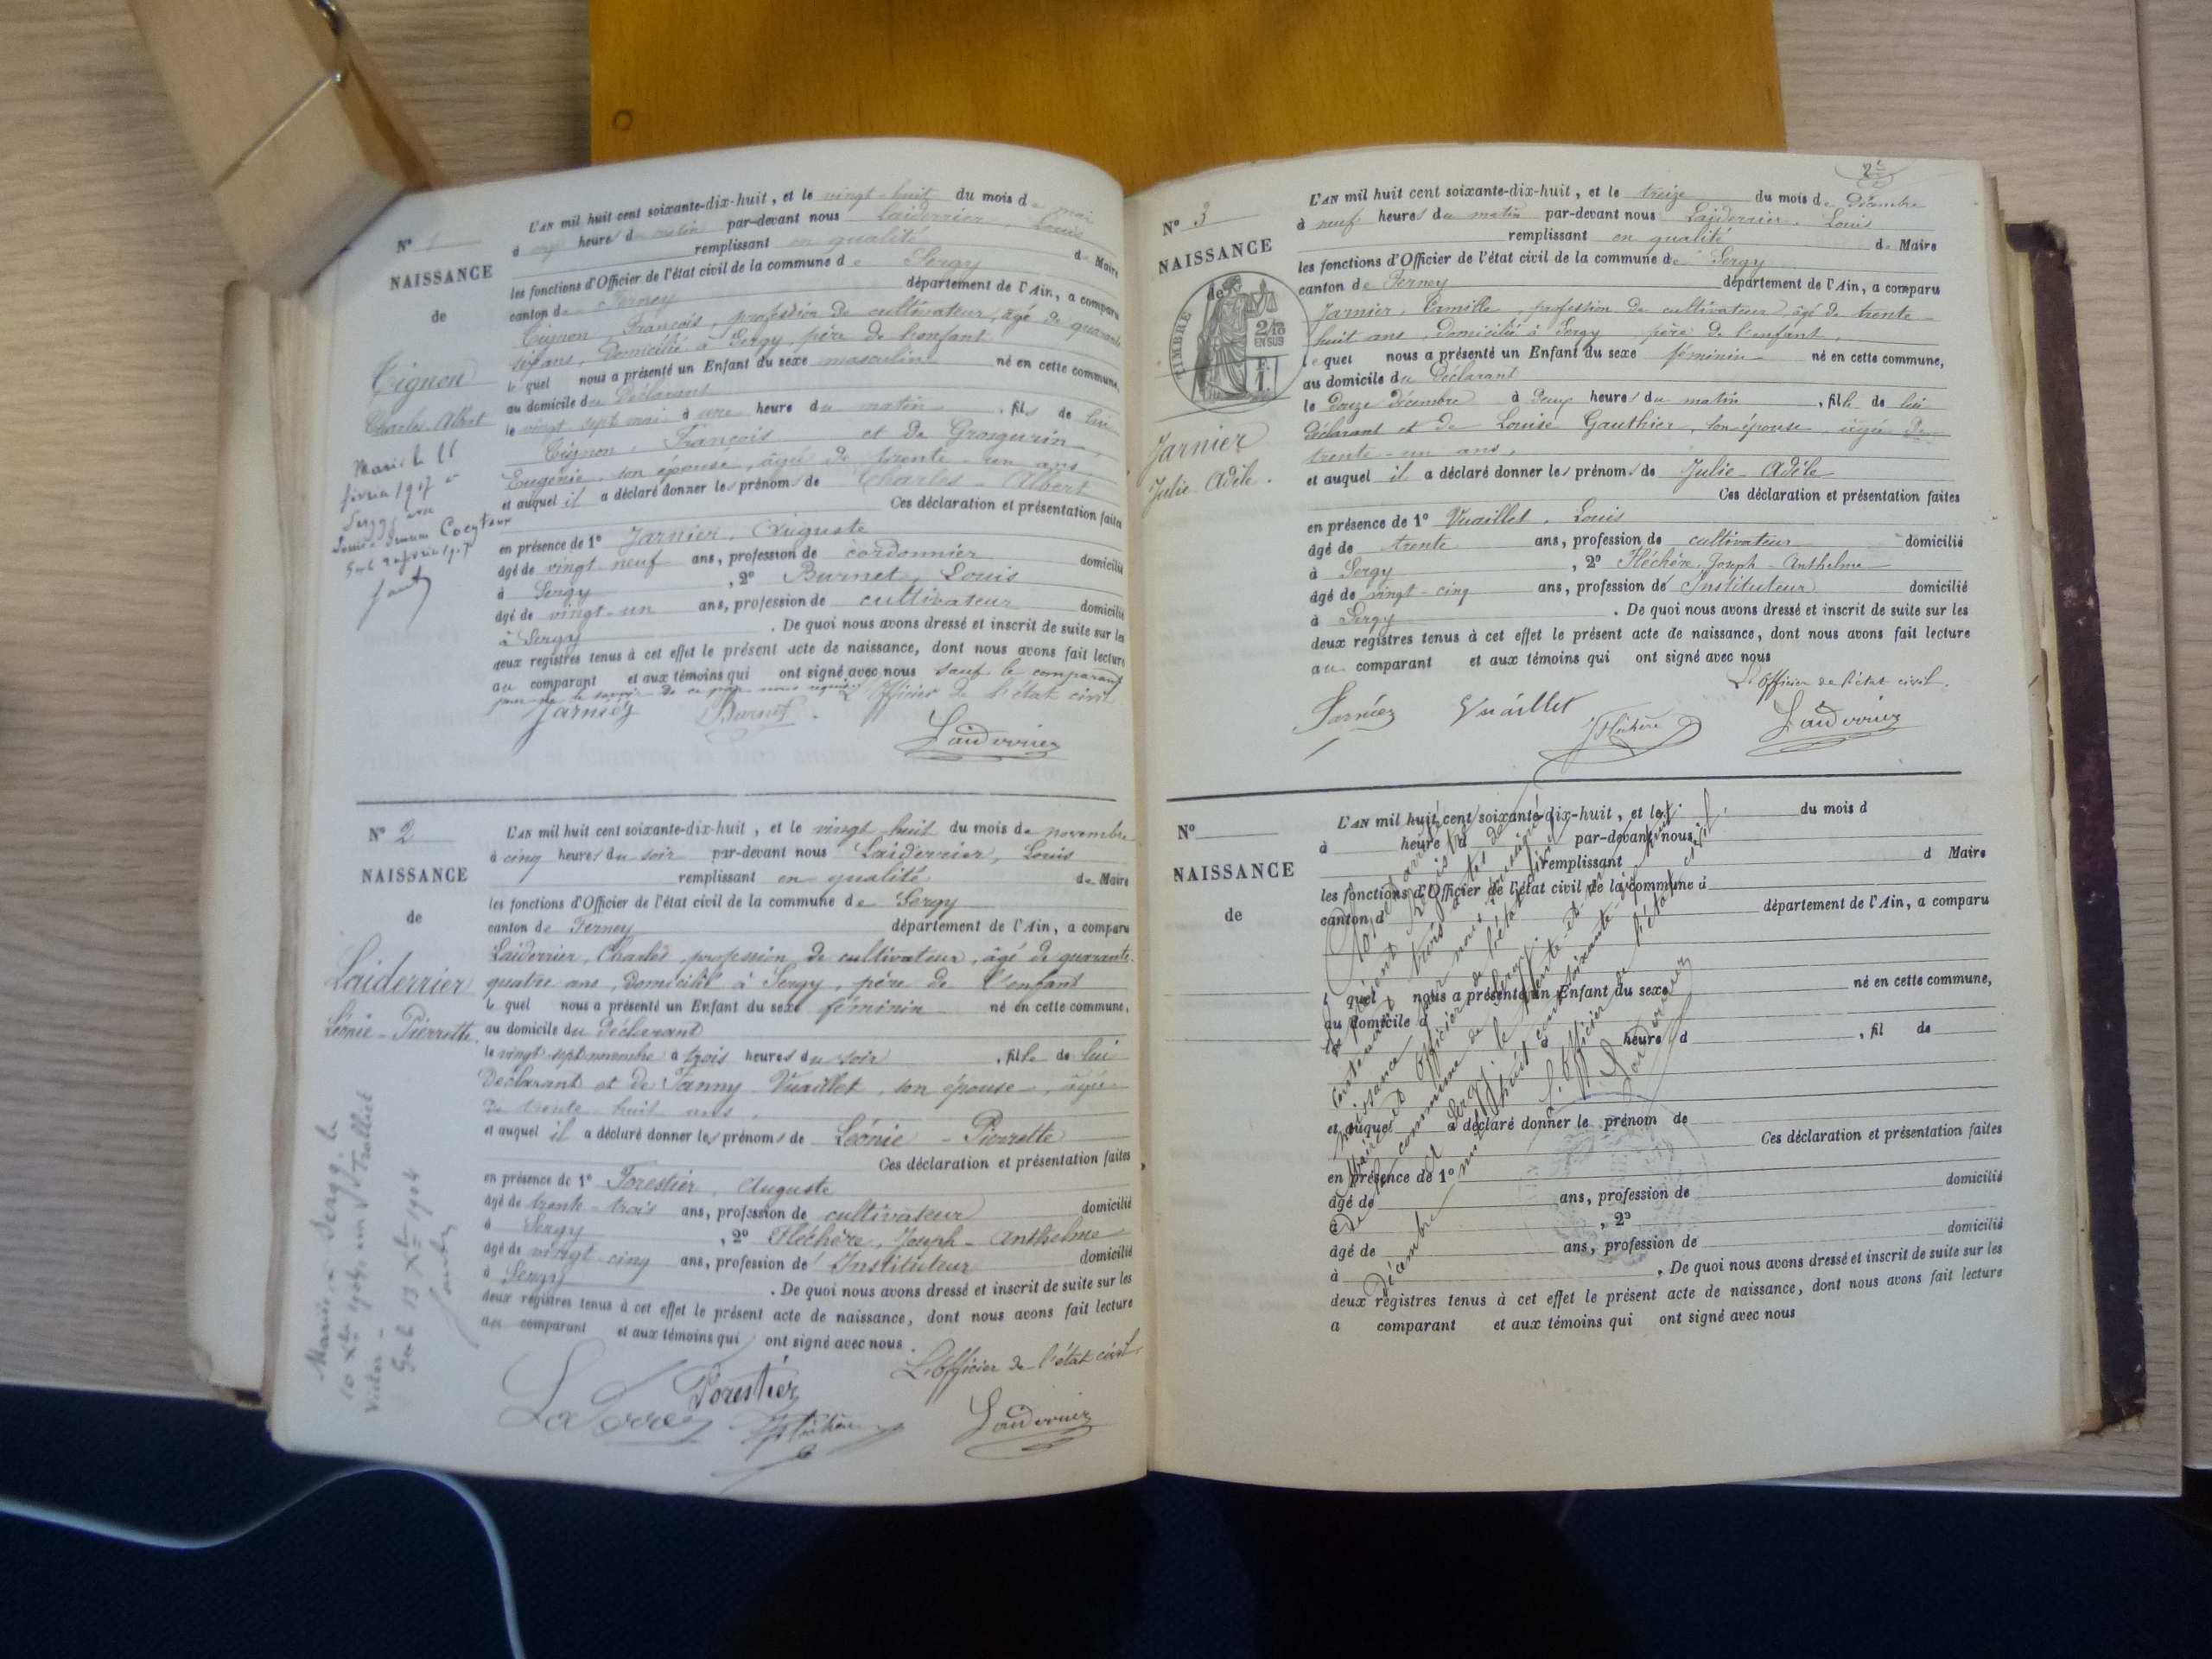 N° 1
NAISSANCE
de
Tignon
Charles Albert
Marié le 11
février 1907 à
Sergy avec
L'AN mil huit cent soixante-dix-huit, et le vingt-huit du mois de mai
à heures du matin par-devant nous Laiderrier, Louis
remplissant en qualité de Maire
les fonctions d'Officier de l'état civil de la commune de Sergy
canton de Ferney département de l'Ain, a comparu
Tignon, François, profession de cultivateur, âgé de quarante
six ans, domicilié à Sergy, père de l'enfant
le quel nous a présenté un Enfant du sexe masculin né en cette commune,
au domicile du Déclarant
le vingt sept mai à une heure du matin, fils de lui
Tignon, François et de Grosgurin,
Eugénie, son épouse, âgée de trente-un ans
et auquel il a déclaré donner les prénoms de Charles-Albert
Ces déclaration et présentation faites
en présence de 1° Jarnier, Auguste
âgé de vingt neuf ans, profession de cordonnier domicilié
à Sergy, 2° Burnet, Louis
âgé de vingt-un ans, profession de cultivateur domicilié
à Sergy. De quoi nous avons dressé et inscrit de suite sur les
deux registres tenus à cet effet le présent acte de naissance, dont nous avons fait lecture
au comparant et aux témoins qui ont signé avec nous sauf le comparant
pour ne le savoir de ce par nous requis L'Officier de l'état civil
Jarnier Burnet
Laiderrier
N° 2
NAISSANCE
de
Laiderrier
Léonie-Pierrette
Mariée à Sergy le
10 Xbre 1904, avec Traillet
Victor-
13 Xbre 1904
L'AN mil huit cent soixante-dix-huit, et le vingt huit du mois de novembre
à cinq heures du soir par-devant nous Laiderrier, Louis
remplissant en qualité de Maire
les fonctions d'Officier de l'état civil de la commune de Sergy
canton de Ferney département de l'Ain, a comparu
Laiderrier, Charles, profession de cultivateur, âgé de quarante
quatre ans, domicilié à Sergy, père de l'enfant
le quel nous a présenté un Enfant du sexe féminin né en cette commune,
au domicile du déclarant
le vingt sept novembre à trois heures du soir, fille de lui
Déclarant et de Fanny Vuaillet, son épouse, âgée
de trente-huit ans,
et auquel il a déclaré donner les prénoms de Léonie-Pierrette
Ces déclaration et présentation faites
en présence de 1° Forestier, Auguste
âgé de trente-trois ans, profession de cultivateur domicilié
à Sergy, 2° Fléchère, Joseph-Anthelme
âgé de vingt cinq ans, profession de Instituteur domicilié
à Sergy. De quoi nous avons dressé et inscrit de suite sur les
deux registres tenus à cet effet le présent acte de naissance, dont nous avons fait lecture
au comparant et aux témoins qui ont signé avec nous.
L'Officier de l'état civil.
Forestier
Laiderrier
2e
N° 3
NAISSANCE
de
TIMBRE
2/10
EN SUS
F.
1.
Jarnier
Julie Adèle.
L'AN mil huit cent soixante-dix-huit, et le treize du mois de Décembre
à neuf heures du matin par-devant nous Laiderrier, Louis
remplissant en qualité de Maire
les fonctions d'Officier de l'état civil de la commune de Sergy
canton de Ferney département de l'Ain, a comparu
Jarnier, Camille, profession de cultivateur âgé de trente
huit ans, domicilié à Sergy père de l'enfant,
le quel nous a présenté un Enfant du sexe féminin né en cette commune,
au domicile du Déclarant
le douze décembre à deux heures du matin, fille de lui
Déclarant et de Louise Gauthier, son épouse âgée de
trente-un ans,
et auquel il a déclaré donner les prénoms de Julie-Adèle
Ces déclaration et présentation faites
en présence de 1° Vuaillet, Louis
âgé de trente ans, profession de cultivateur domicilié
à Sergy, 2° Fléchère, Joseph-Anthelme
âgé de vingt-cinq ans, profession de Instituteur domicilié
à Sergy. De quoi nous avons dressé et inscrit de suite sur les
deux registres tenus à cet effet le présent acte de naissance, dont nous avons fait lecture
au comparant et aux témoins qui ont signé avec nous
L'Officier de l'état civil.
Jarnier Vuaillet
Fléchère Laiderrier
N°
NAISSANCE
de
L'AN mil huit cent soixante-dix-huit, et le du mois d
à heure d par-devant nous
remplissant d Maire
les fonctions d'Officier de l'état civil de la commune d
canton d département de l'Ain, a comparu
quel nous a présenté un Enfant du sexe né en cette commune,
au domicile d
à heure d, fil de
et auquel a déclaré donner le prénom de
Ces déclaration et présentation faites
en présence de 1°
âgé de ans, profession de domicilié
à, 2°
âgé de ans, profession de domicilié
à. De quoi nous avons dressé et inscrit de suite sur les
deux registres tenus à cet effet le présent acte de naissance, dont nous avons fait lecture
a comparant et aux témoins qui ont signé avec nous
Clos et arrêté
le présent registre
contenant trois actes de
naissance par nous soussigné
Maire et Officier de l'état civil
de la commune de Sergy.
à Sergy, le trente et un
Décembre mil huit cent soixante dix huit.
L'Officier de l'état civil
Laiderrier